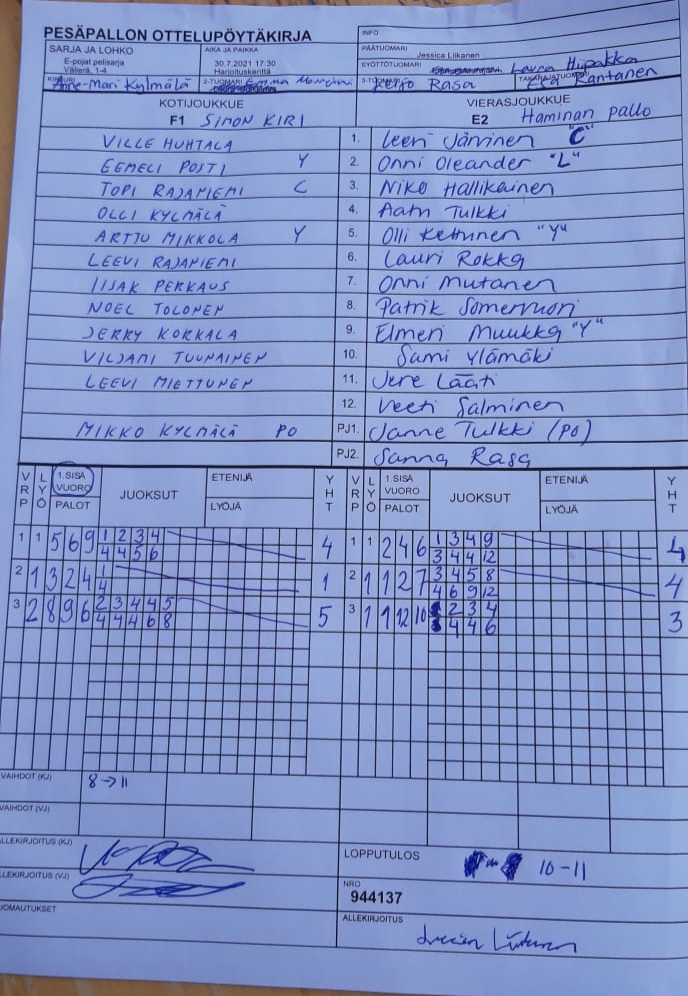 PESÄPALLON OTTELUPÖYTÄKIRJA
INFO
SARJA JA LOHKO
AIKA JA PAIKKA
PÄÄTUOMARI
Jessica Liikanen
E-pojat pelisarja
30.7.2021 17:30
SYÖTTÖTUOMARI
Laura Hiipakka
Välierä, 1-4
Harjoituskenttä
Anne-Mari Kylmälä
2-TUOMARI
Emma
3-TUOMARI
Reijo Rasa
TAKARAJATUOMARI
Eea Rantanen
KOTIJOUKKUE
VIERASJOUKKUE
F1 SIMON KIRI
E2 Haminan pallo
VILLE HUHTALA 1. Leeri Järvinen "C"
EEMELI POSTI Y 2. Onni Oleander "L"
TOPI RAJANIEMI C 3. Niko Hallikainen
OLLI KYLMÄLÄ 4. Aatu Tulkki
ARTTU MIKKOLA Y 5. Olli Kettunen "Y"
LEEVI RAJANIEMI 6. Lauri Rokka
IISAK PERKAUS 7. Onni Mutanen
NOEL TOLONEN 8. Patrik Somervuori
JERRY KORKALA 9. Elmeri Muukka "Y"
VILJAMI TUUNAINEN 10. Sami Ylämäki
LEEVI MIETTUNEN 11. Jere Lääti
12. Veeti Salminen
MIKKO KYLMÄLÄ PO PJ1. Janne Tulkki (PO)
PJ2. Sanna Rasa
VRP LYÖ 1.SISÄ VUORO PALOT JUOKSUT ETENIJÄ LYÖJÄ YHT VRP LYÖ 1.SISÄ VUORO PALOT JUOKSUT ETENIJÄ LYÖJÄ YHT
1 1 5 6 9 1 2 3 4 4 1 1 2 4 6 1 3 4 9 4
4 4 5 6 3 4 4 12
2 1 3 2 4 1 1 2 1 1 2 7 3 4 5 8 4
4 4 6 9 12
3 2 8 9 6 2 3 4 4 5 5 3 1 1 12 10 2 3 4 3
4 4 4 6 8 4 4 6
VAIHDOT (KJ) 8→11
VAIHDOT (VJ)
ALLEKIRJOITUS (KJ)
LOPPUTULOS 10-11
ALLEKIRJOITUS (VJ)
NRO
944137
HUOMAUTUKSET
ALLEKIRJOITUS